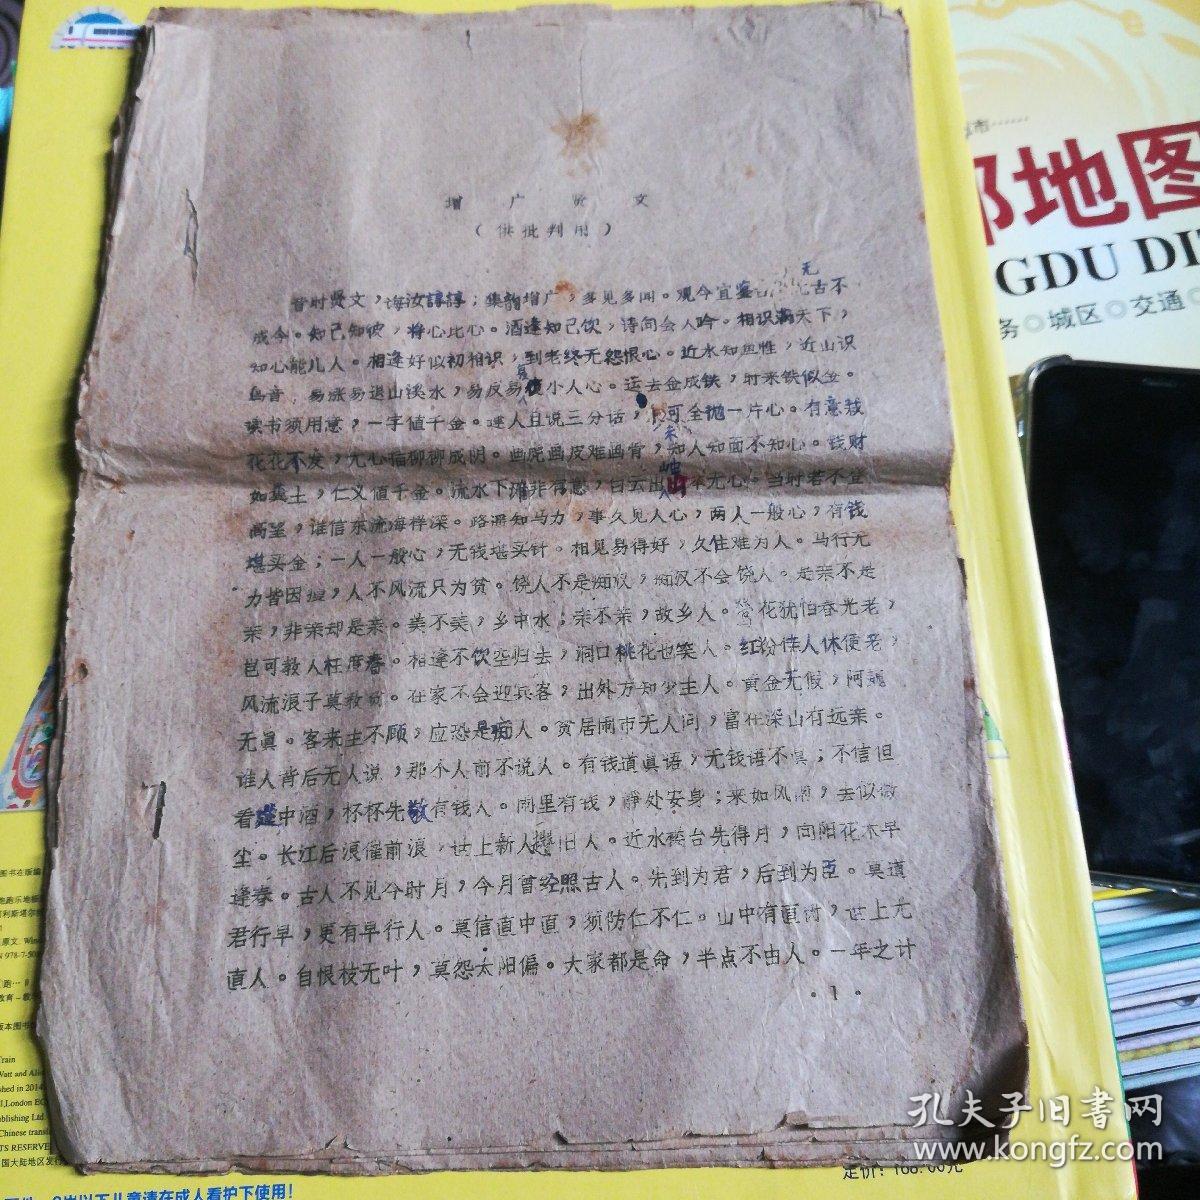 增广贤文
（供批判用）
昔时贤文，诲汝谆谆；集韵增广，多见多闻。观今宜鉴古，无古不
成今。知己知彼，将心比心。酒逢知己饮，诗向会人吟。相识满天下，
知心能几人。相逢好似初相识，到老终无怨恨心。近水知鱼性，近山识
鸟音。易涨易退山溪水，易反易复小人心。运去金成铁，时来铁似金。
读书须用意，一字值千金。逢人且说三分话，未可全抛一片心。有意栽
花花不发，无心插柳柳成阴。画虎画皮难画骨，知人知面不知心。钱财
如粪土，仁义值千金。流水下滩非有意，白云出岫本无心。当时若不登
高望，谁信东流海样深。路遥知马力，事久见人心，两人一般心，有钱
堪买金；一人一般心，无钱堪买针。相见易得好，久住难为人。马行无
力皆因瘦，人不风流只为贫。饶人不是痴汉，痴汉不会饶人。是亲不是
亲，非亲却是亲。美不美，乡中水；亲不亲，故乡人。莺花犹怕春光老，
岂可教人枉度春。相逢不饮空归去，洞口桃花也笑人。红粉佳人休使老，
风流浪子莫教贫。在家不会迎宾客，出外方知少主人。黄金无假，阿魏
无真。客来主不顾，应恐是痴人。贫居闹市无人问，富在深山有远亲。
谁人背后无人说，那个人前不说人。有钱道真语，无钱语不真；不信但
看筵中酒，杯杯先敬有钱人。闹里有钱，静处安身；来如风雨，去似微
尘。长江后浪催前浪，世上新人趱旧人。近水楼台先得月，向阳花木早
逢春。古人不见今时月，今月曾经照古人。先到为君，后到为臣。莫道
君行早，更有早行人。莫信直中直，须防仁不仁。山中有直树，世上无
直人。自恨枝无叶，莫怨太阳偏。大家都是命，半点不由人。一年之计
·1·
地图
GDU DI
城区◎交通
孔夫子旧书网
www.kongfz.com